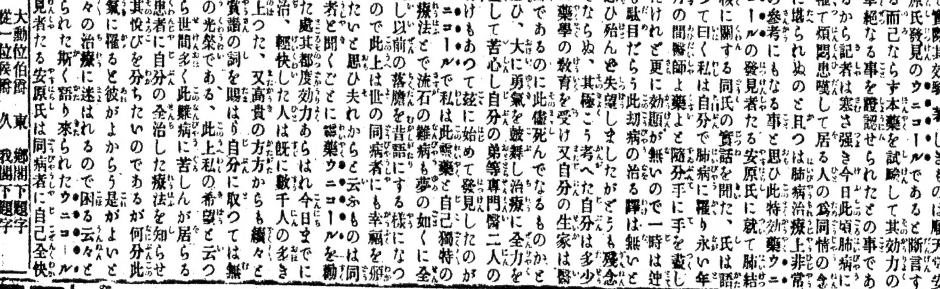 原氏發見のウニコールであると斷言す
る而己ならず本藥を試驗して其效力の
卓絶なる事を證認せられたとの事であ
るから記者は塞さ强き今日此頃肺病に
罹て煩悶悲嘆して居る人の爲同情の念
に堪られぬのと且つは肺病治療上非常
の參考にもなる事と思ひ此特效藥ウニ
コールの發見者たる安原氏に就て肺結
核に關する同氏の實話を聞た、氏は語
つて曰く私は自分で肺病に罹り永い年
月の間醫師よ藥よと隨分手に手を盡し
たけれど更に效顯が無いので一時は迚
も駄目だらう此劫病の治る譯は無いと
思ひ殆んど失望しましたがどうも殘念
でならぬ、其極こう考へた自分は多少
藥學の敎育を受け又自分の生家は醫
であるのに此儘死んでなるものかと
ひ、大に勇氣を鼓舞し治療に全力を
して苦心し自分の弟等專門醫二人の
けもあつて玆に始めて發見したのが
ニコールで私は此靈藥と自己獨特の
療法とで流石の難病も夢の如くに全
し以前の落膽を昔語にする樣になつ
ので此上は世の同病者にも幸福を頒
たいと思ひ夫れからと云ふものは同
者と聞くごとに靈藥ウニコールを勸
た處其都度效力あらはれ今日までに
治、輕快した人は既に數千人の多き
上つた、又高貴の方方からも續々と
賞讃の詞を賜はり自分に取つては無
の光榮である、此上私の希望と云つ
ら世間多く此難病に苦しんが居らる
患者に自分の全治した療法を知らせ
其悅びを分ちたいのであるが何分此
氣に罹ると彼がよからう是がよいと
々の治療に迷はれるので困る云々と
られた斯く語り來られたウニコール
見者たる安原氏は同病者に自己全快
大勳位伯爵 東 鄕閣下題字
從一位侯爵 久 我閣下題字